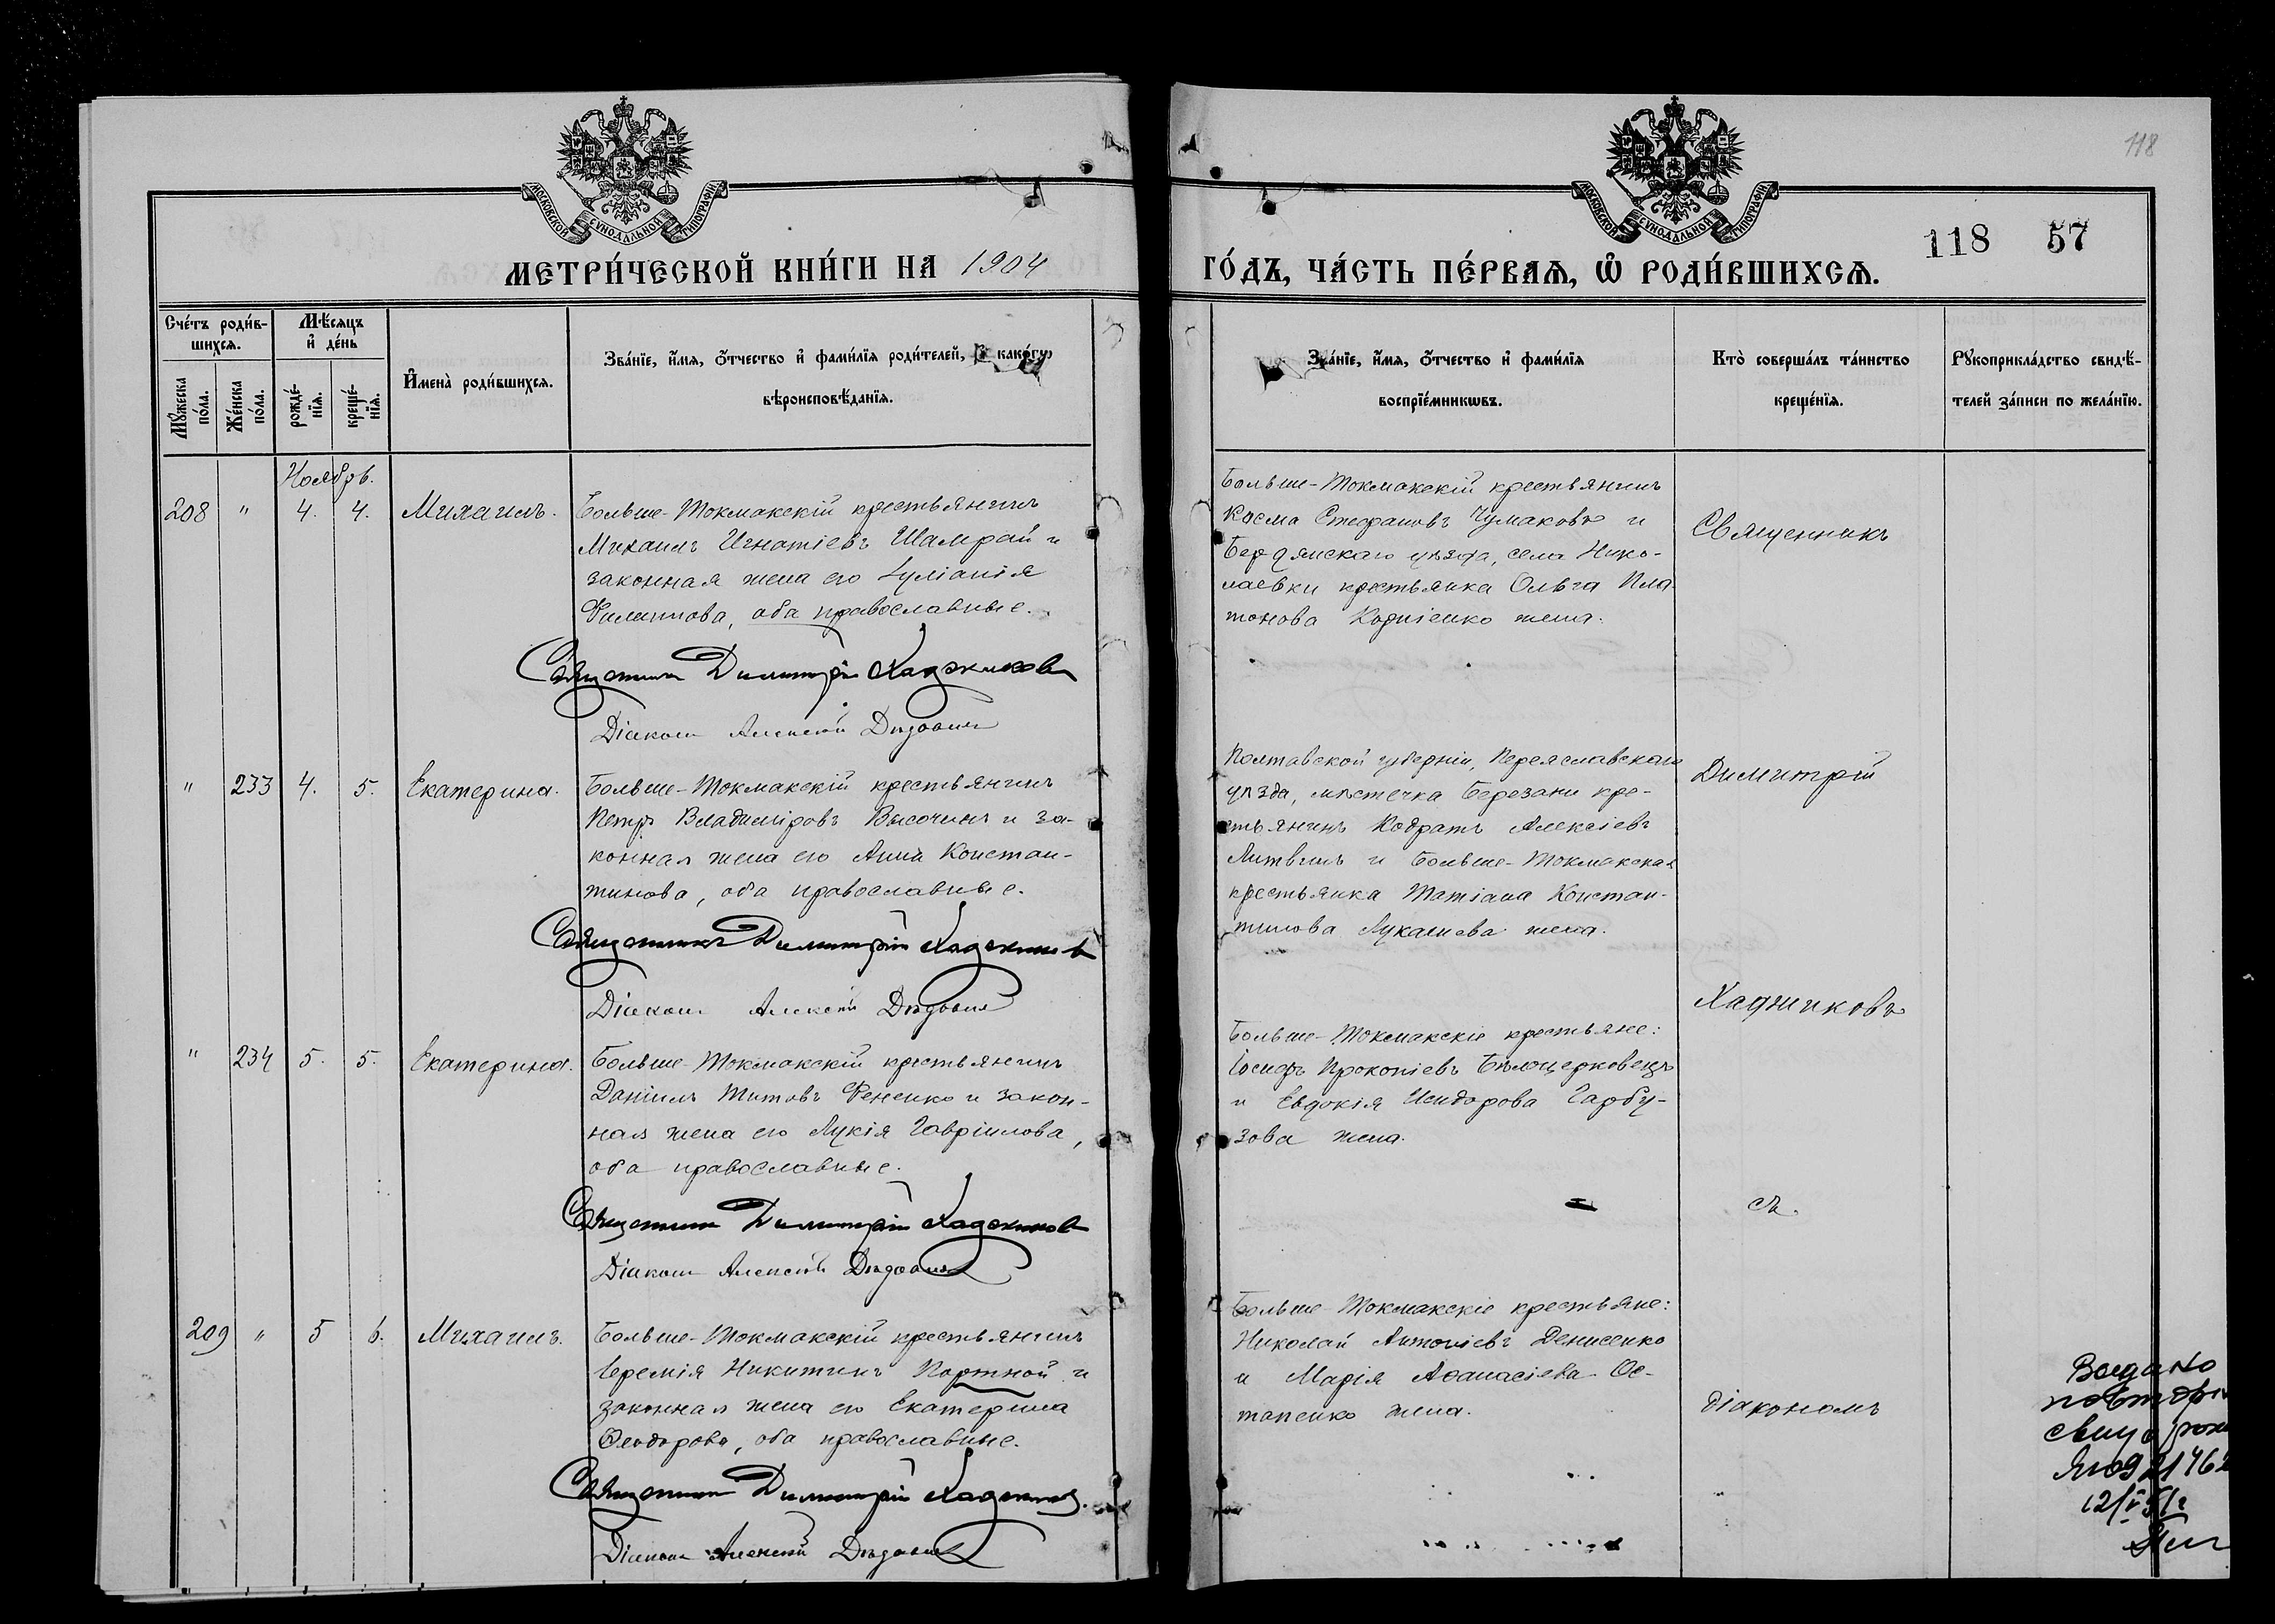 118
МОСКОВСКОЙ СѴНОДАЛЬНОЙ ТИПОГРАФІИ
МОСКОВСКОЙ СѴНОДАЛЬНОЙ ТИПОГРАФІИ
118 57
МЕТРИ́ЧЕСКОЙ КНИ́ГИ НА 1904
ГО́ДЪ, ЧА́СТЬ ПЕ́РВАѦ, Ѡ҆ РОДИ́ВШИХСѦ.
Сче́тъ роди́в-
шихсѧ.
Мꙋ́жеска по́ла.
Же́нска по́ла.
Мѣ́сѧцъ и҆ де́нь
рожде́-нїѧ.
креще́-нїѧ.
И҆мена̀ роди́вшихсѧ.
Зва́нїе, и҆́мѧ, ѻ҆́тчество и҆ фами́лїѧ роди́телей, и҆ како́гѡ
вѣроисповѣ́данїѧ.
Зва́нїе, и҆́мѧ, ѻ҆́тчество и҆ фами́лїѧ
воспрїе́мникѡвъ.
Кто̀ соверша́лъ та́инство
креще́нїѧ.
Рꙋкоприкла́дство свидѣ́-
телей за́писи по жела́нїю.
Ноябрь.
208 " 4. 4. Михаилъ.
Больше-Токмакскій крестьянинъ
Михаилъ Игнатіевъ Шамрай и
законная жена его Іуліанія
Филиппова, оба православные.
Священникъ Димитрій Хаджиновъ
Діаконъ Алексій
Больше-Токмакскій крестьянинъ
Косма Стефановъ Чумаковъ и
Бердянскаго уѣзда, села Нико-
лаевки крестьянка Ольга Пла-
тонова Корніенко жена.
Священникъ
" 233 4. 5. Екатерина.
Больше-Токмакскій крестьянинъ
Петръ Владиміровъ Высочинъ и за-
конная жена его Анна Констан-
тинова, оба православные.
Священникъ Димитрій Хаджиновъ
Діаконъ Алексій
Полтавской губерніи, Переяславскаго
уѣзда, мѣстечка Березани кре-
стьянинъ Кодратъ Алексіевъ
Литвинъ и Больше-Токмакская
крестьянка Татіана Констан-
тинова жена.
Димитрій
Хаджиновъ
" 234 5. 5. Екатерина.
Больше-Токмакскій крестьянинъ
Даніилъ Титовъ Фененко и закон-
ная жена его Лукія Гавріилова,
оба православные.
Священникъ Димитрій Хаджиновъ
Діаконъ Алексій
Больше-Токмакскіе крестьяне:
Іосифъ Прокопіевъ Бѣлоцерковецъ
и Евдокія Исидорова Гарбу-
зова жена.
съ
209 " 5 6. Михаилъ.
Больше-Токмакскій крестьянинъ
Іеремія Никитинъ Портной и
законная жена его Екатерина
Ѳеодорова, оба православные.
Священникъ Димитрій Хаджиновъ.
Діаконъ Алексій
Больше-Токмакскіе крестьяне:
Николай Антоніевъ Денисенко
и Марія Аѳанасіева Ос-
тапенко жена.
діакономъ